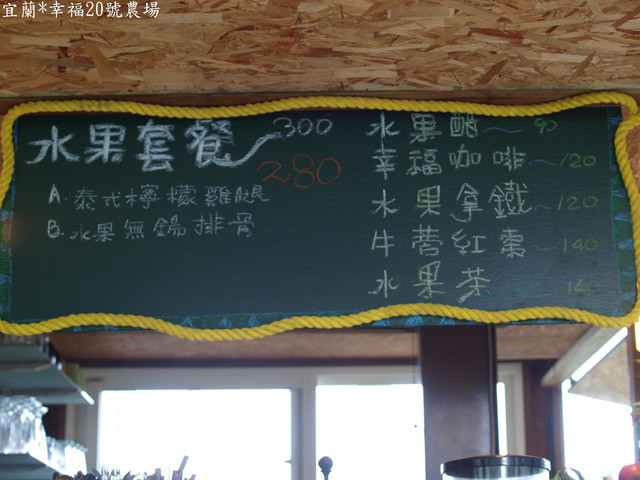 宜蘭*幸福20號農場
水果套餐 300
280
A. 泰式檸檬雞腿
B. 水果無錫排骨
水果醋～90
幸福咖啡～120
水果拿鐵～120
牛蒡紅棗～140
水果茶～140